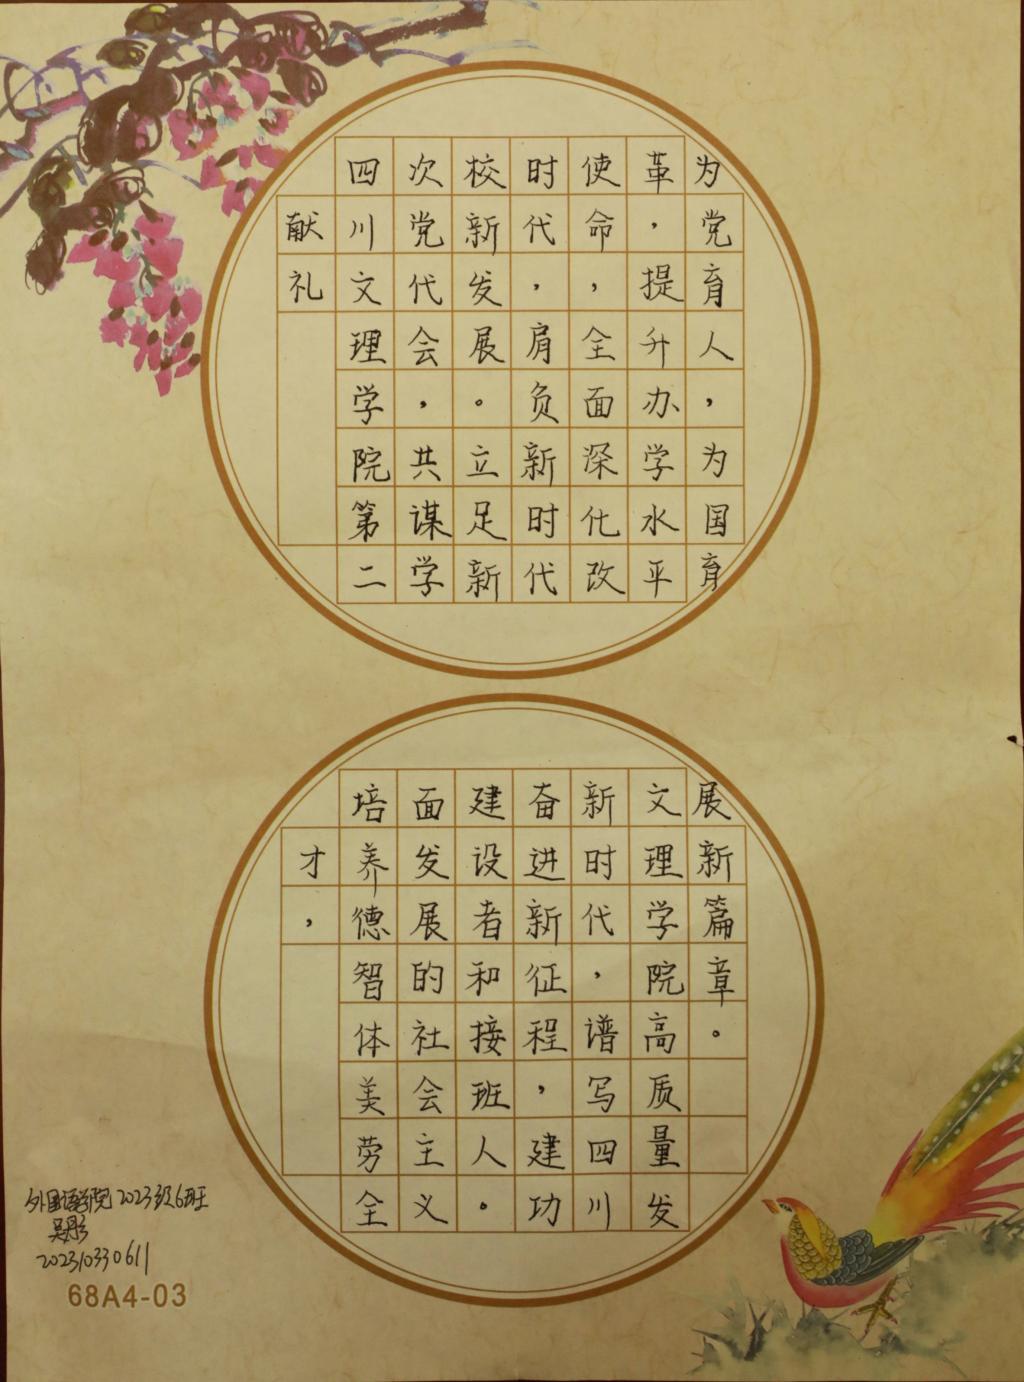 献礼
四川文理学院第二
次党代会，共谋学
校新发展。立足新
时代，肩负新时代
使命，全面深化改
革，提升办学水平
为党育人，为国育
才，
培养德智体美劳全
面发展的社会主义
建设者和接班人。
奋进新征程，建功
新时代，谱写四川
文理学院高质量发
展新篇章。
外国语学院2023级6班
吴彤
202310330611
68A4-03